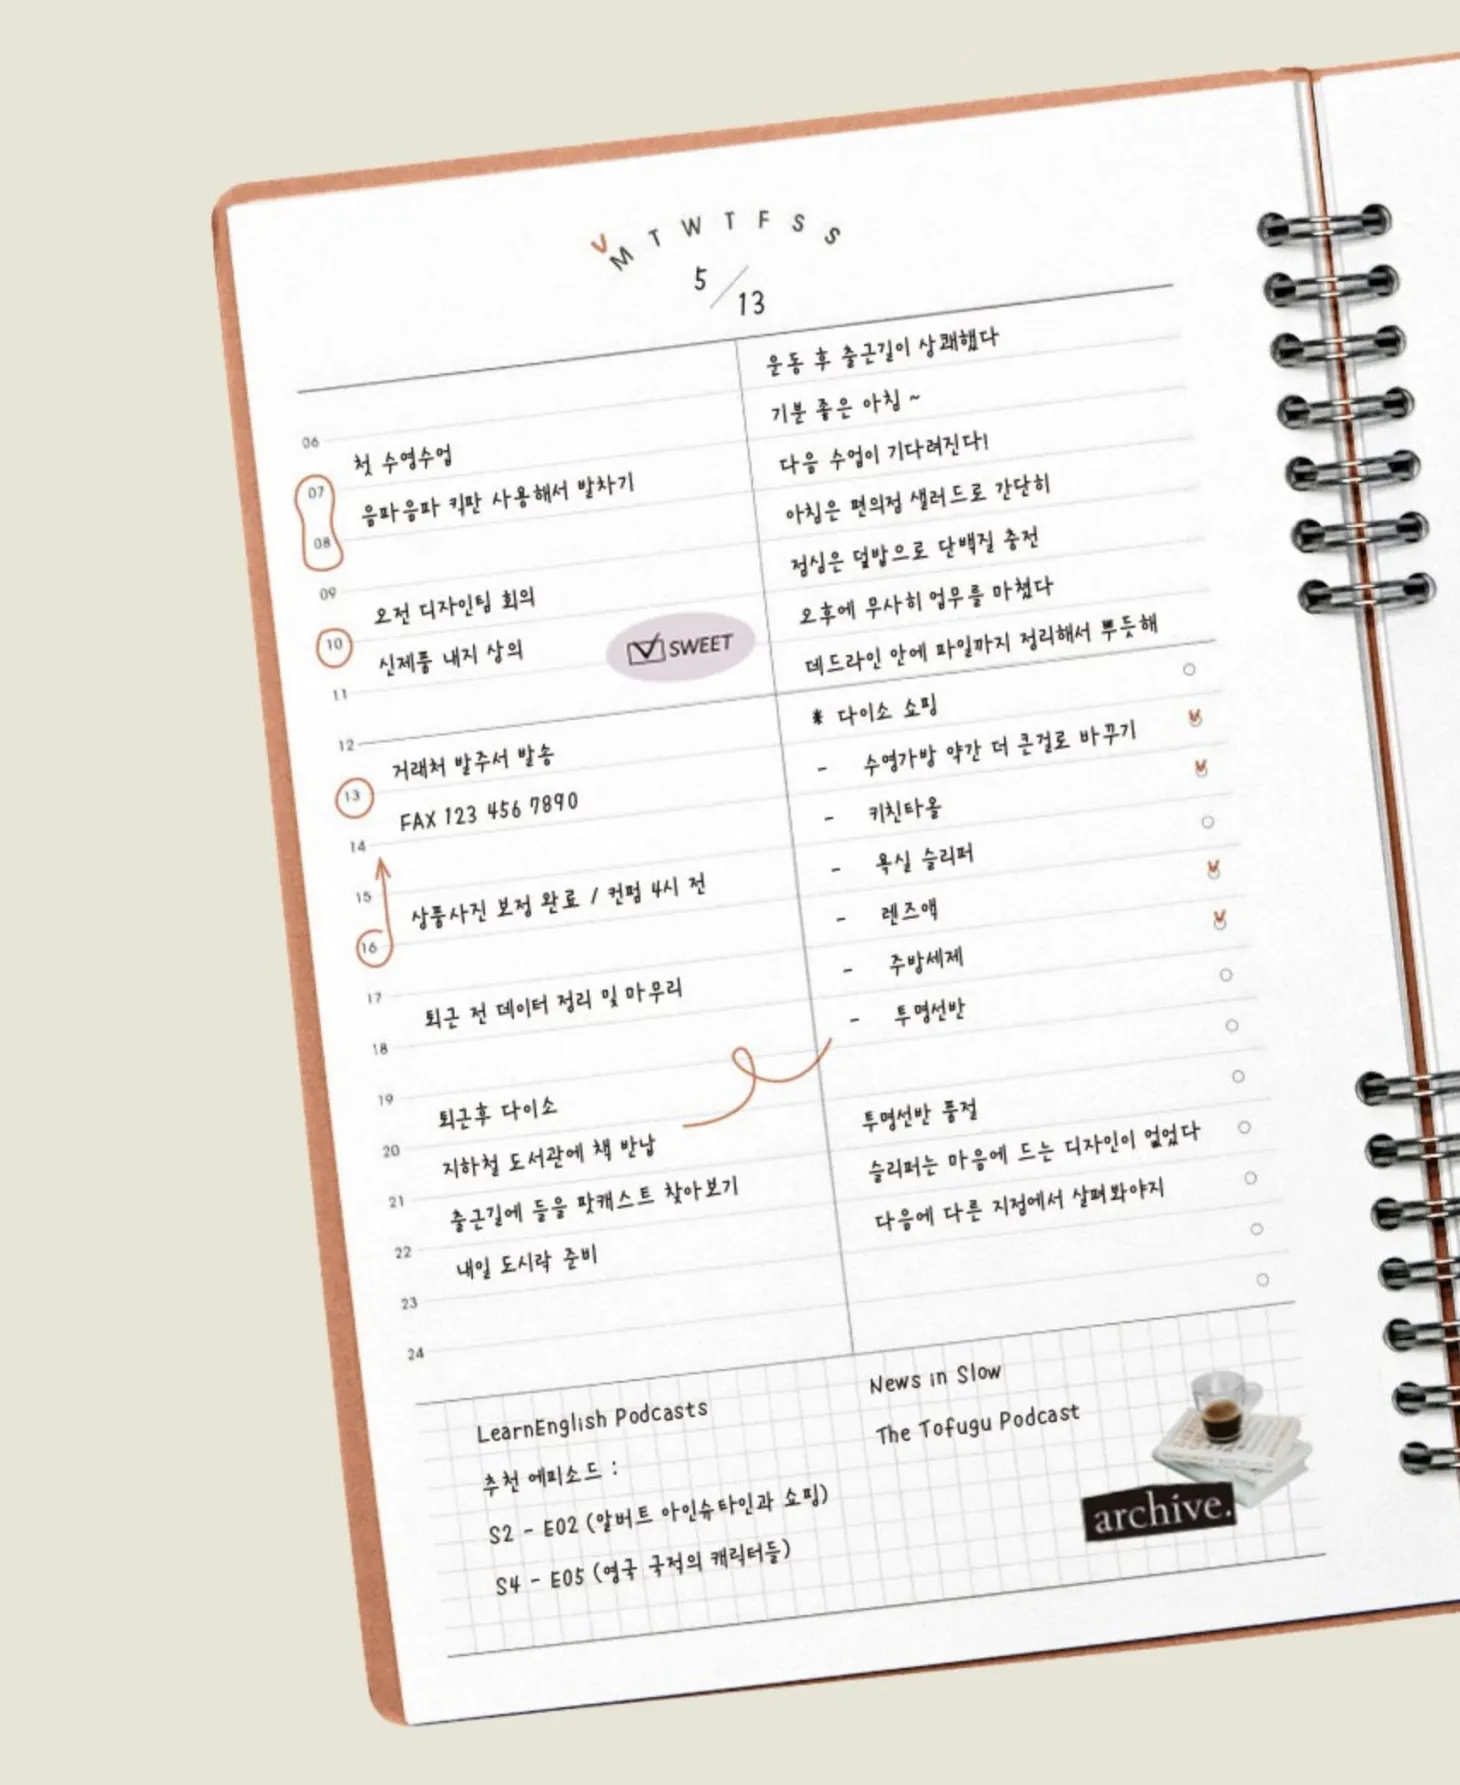 V
M T W T F S S
5 / 13
06
첫 수영수업
07
음파음파 킥판 사용해서 발차기
08
09
오전 디자인팀 회의
10
신제품 내지 상의
SWEET
11
12
거래처 발주서 발송
13
FAX 123 456 7890
14
15
상품사진 보정 완료 / 컨펌 4시 전
16
17
퇴근 전 데이터 정리 및 마무리
18
19
퇴근후 다이소
20
지하철 도서관에 책 반납
21
출근길에 들을 팟캐스트 찾아보기
22
내일 도시락 준비
23
24
운동 후 출근길이 상쾌했다
기분 좋은 아침 ~
다음 수업이 기다려진다!
아침은 편의점 샐러드로 간단히
점심은 덮밥으로 단백질 충전
오후에 무사히 업무를 마쳤다
데드라인 안에 파일까지 정리해서 뿌듯해
* 다이소 쇼핑
- 수영가방 약간 더 큰걸로 바꾸기
- 키친타올
- 욕실 슬리퍼
- 렌즈액
- 주방세제
- 투명선반
투명선반 품절
슬리퍼는 마음에 드는 디자인이 없었다
다음에 다른 지점에서 살펴봐야지
LearnEnglish Podcasts
추천 에피소드 :
S2 - E02 (알버트 아인슈타인과 쇼핑)
S4 - E05 (영국 국적의 캐릭터들)
News in Slow
The Tofugu Podcast
archive.